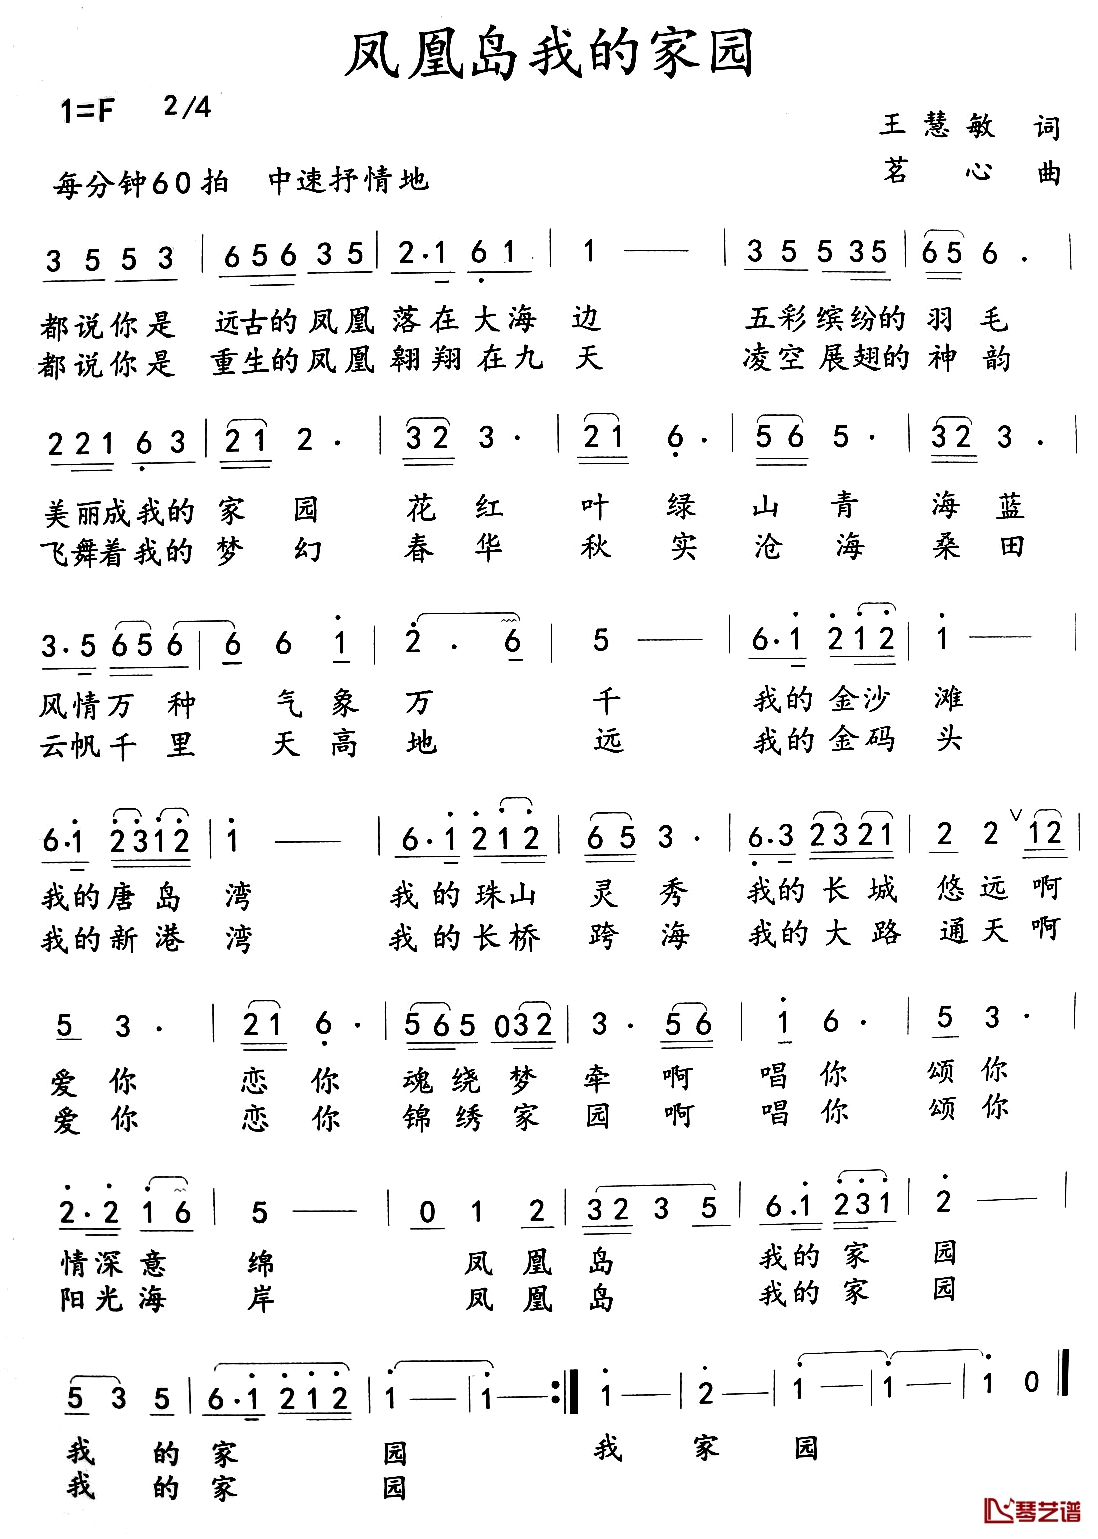 凤凰岛我的家园
1=F 2/4
王慧敏 词
每分钟60拍 中速抒情地
茗心 曲
3 5 5 3 | 6 5 6 3 5 | 2 · 1 6 1 | 1 — — | 3 5 5 3 5 | 6 5 6 · |
都说你是 远古的凤凰 落在大海 边 五彩缤纷的 羽毛
都说你是 重生的凤凰 翱翔在九 天 凌空展翅的 神韵
2 2 1 6 3 | 2 1 2 · | 3 2 3 · | 2 1 6 · | 5 6 5 · | 3 2 3 · |
美丽成我的 家园 花红 叶绿 山青 海蓝
飞舞着我的 梦幻 春华 秋实 沧海 桑田
3 · 5 6 5 6 | 6 6 1 | 2 · 6 | 5 — — | 6 · 1 2 1 2 | 1 — — |
风情万种 气象万 千 我的金沙 滩
云帆千里 天高地 远 我的金码 头
6 · 1 2 3 1 2 | 1 — — | 6 · 1 2 1 2 | 6 5 3 · | 6 · 3 2 3 2 1 | 2 2 ∨ 1 2 |
我的唐岛 湾 我的珠山 灵秀 我的长城 悠远啊
我的新港 湾 我的长桥 跨海 我的大路 通天啊
5 3 · | 2 1 6 · | 5 6 5 0 3 2 | 3 · 5 6 | 1 6 · | 5 3 · |
爱你 恋你 魂绕梦 牵啊 唱你 颂你
爱你 恋你 锦绣家 园啊 唱你 颂你
2 · 2 1 6 | 5 — — | 0 1 2 | 3 2 3 5 | 6 · 1 2 3 1 | 2 — — |
情深意 绵 凤凰岛 我的家 园
阳光海 岸 凤凰岛 我的家 园
5 3 5 | 6 · 1 2 1 2 | 1 — | 1 — :| 1 — | 2 — | 1 — | 1 — | 1 0 ‖
我的家 园 我家园
我的家 园
琴艺谱